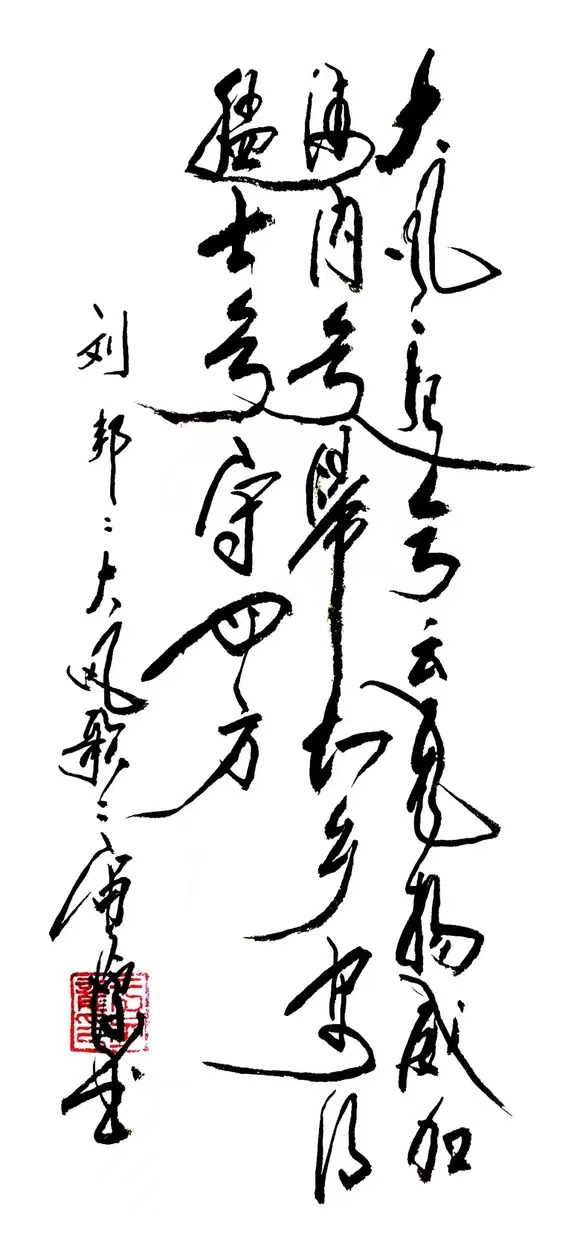 大风起兮云飞扬威加
海内兮归故乡安得
猛士兮守四方
刘邦：大风歌：唐 书